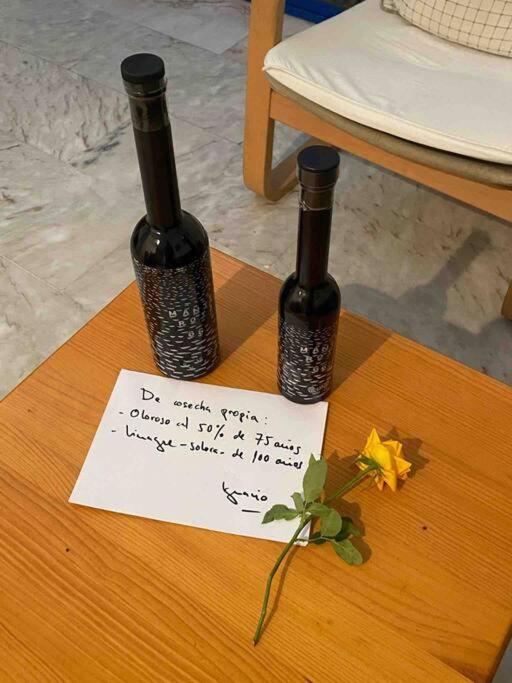 MAR
RO
DE
MAR
RO
DE
De cosecha propia:
- Oloroso al 50% de 75 años
- Vinagre - solera - de 100 años
Ignacio